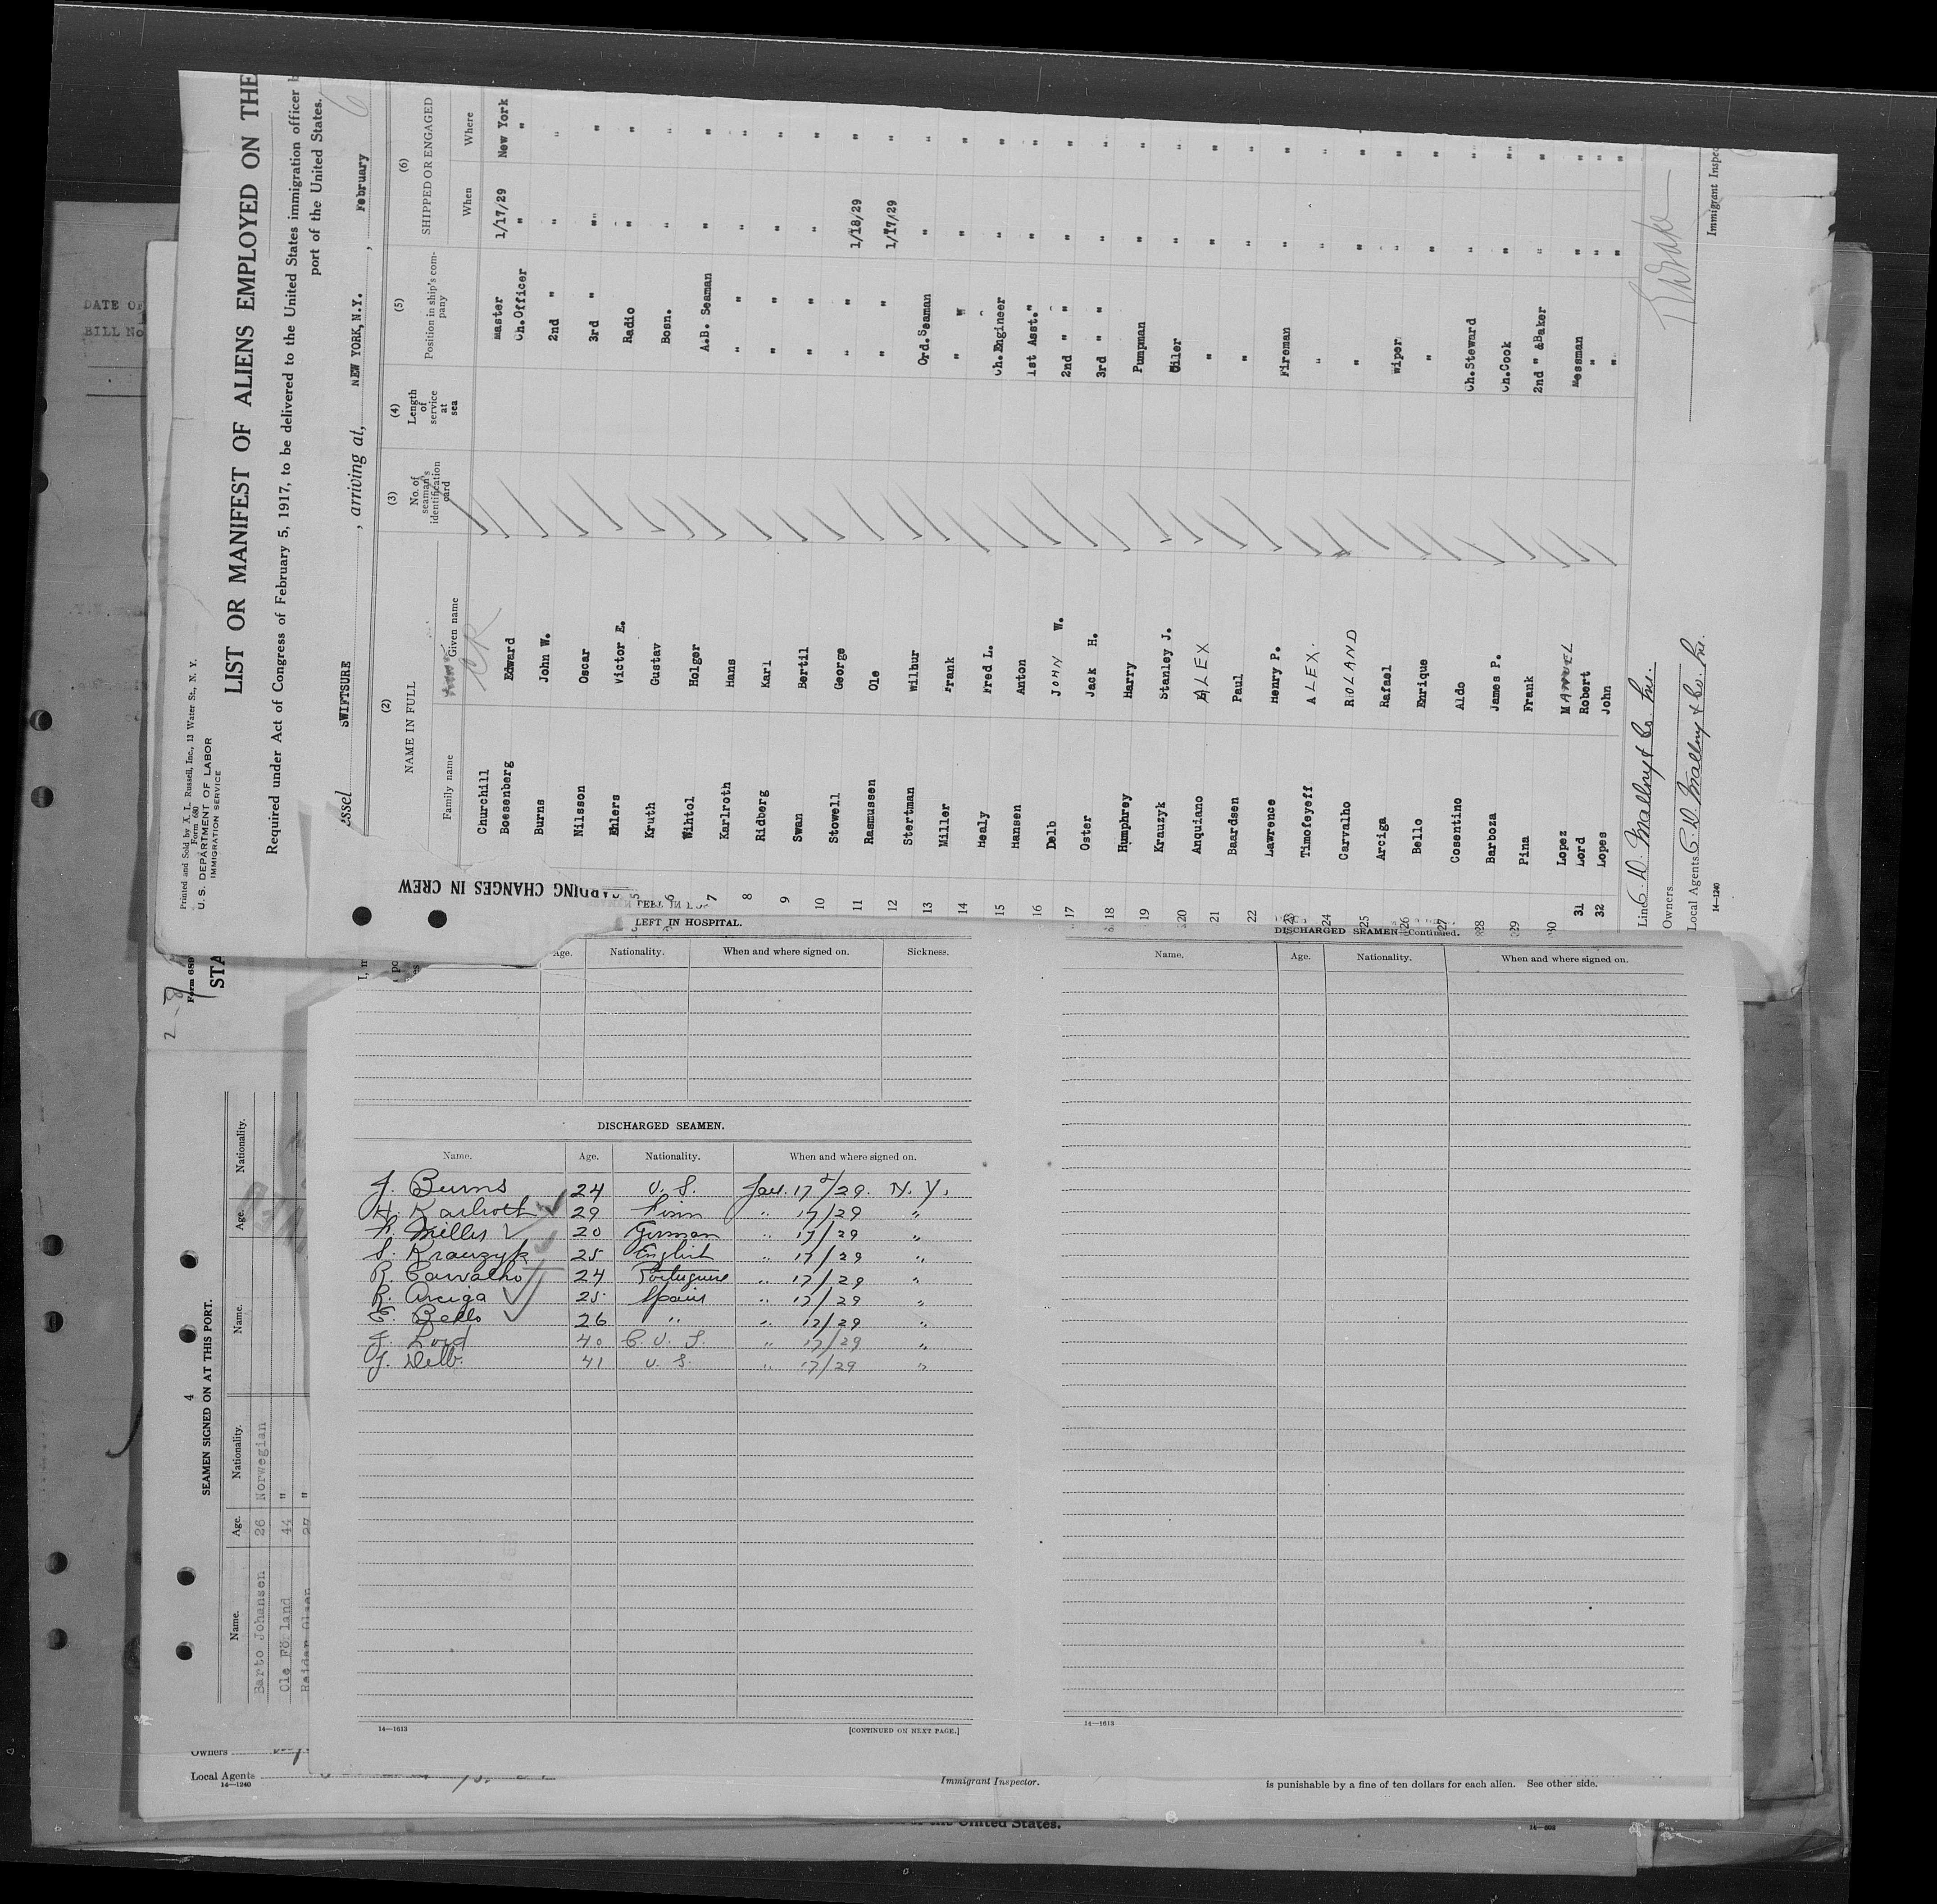 Printed and Sold by A. L. Russell, Inc., 13 Water St., N. Y.
Form 680
U. S. DEPARTMENT OF LABOR
IMMIGRATION SERVICE
LIST OR MANIFEST OF ALIENS EMPLOYED ON THE
Required under Act of Congress of February 5, 1917, to be delivered to the United States immigration officer
port of the United States.
essel SWIFTSURE , arriving at, NEW YORK, N.Y. , February 6
(2) (3) (4) (5) (6)
NAME IN FULL No. of seaman's identification card Length of service at sea Position in ship's company SHIPPED OR ENGAGED
Family name Given name When Where
Churchill CR Master 1/17/29 New York
Boesenberg Edward Ch.Officer " "
Burns John W. 2nd " " "
Nilsson Oscar 3rd " " "
5 Ehlers Victor E. Radio " "
6 Kruth Gustav Bosn. " "
7 Wihtol Holger A.B. Seaman " "
8 Karlroth Hans " " " "
9 Ridberg Karl " " " "
10 Swan Bertil " " " "
11 Stowell George " " 1/18/29 "
12 Rasmussen Ole " " 1/17/29 "
13 Stertman Wilbur Ord.Seaman " "
14 Miller Frank " " " "
15 Healy Fred L. Ch.Engineer " "
16 Hansen Anton 1st Asst." " "
17 Delb JOHN W. 2nd " " " "
18 Oster Jack H. 3rd " " " "
19 Humphrey Harry Pumpman " "
20 Krauzyk Stanley J. Oiler " "
21 Anquiano ALEX " " "
22 Baardsen Paul " " "
23 Lawrence Henry P. Fireman " "
24 Timofeyeff ALEX. " " "
25 Carvalho ROLAND " " "
26 Arciga Rafael Wiper " "
27 Bello Enrique " " "
28 Cosentino Aldo Ch.Steward " "
29 Barboza James P. Ch.Cook " "
30 Pina Frank 2nd " &Baker " "
Lopez MANUEL Messman " "
31 Lord Robert " " "
32 Lopes John " " "
Line C. D. Mallory & Co. Inc.
Owners
Local Agents C. D. Mallory & Co. Inc.
14—1240
Immigrant Inspec
ARDING CHANGES IN CREW
LEFT IN HOSPITAL.
Age. Nationality. When and where signed on. Sickness.
DISCHARGED SEAMEN.
Name. Age. Nationality. When and where signed on.
J. Burns 24 U. S. Jan. 17/29. N. Y.
H. Karlroth 29 Finn " 17/29 "
F. Miller 20 German " 17/29 "
S. Krauzyk 25 English " 17/29 "
R. Carvalho 24 Portuguese " 17/29 "
R. Arciga 25 Spain " 17/29 "
E. Bello 26 " " 17/29 "
J. Lord 40 B. U. S. " 17/29 "
J. Delb. 41 U. S. " 17/29 "
14—1613
[CONTINUED ON NEXT PAGE.]
DISCHARGED SEAMEN—Continued.
Name. Age. Nationality. When and where signed on.
14—1613
Form 689
STA
DATE OF
BILL No
4
SEAMEN SIGNED ON AT THIS PORT.
Name. Age. Nationality. Name. Age. Nationality.
Barto Johansen 26 Norwegian
Ole Förland 44 "
Reidar Olsen 27 "
Owners
Local Agents
14—1240
Immigrant Inspector.
is punishable by a fine of ten dollars for each alien. See other side.
the United States.